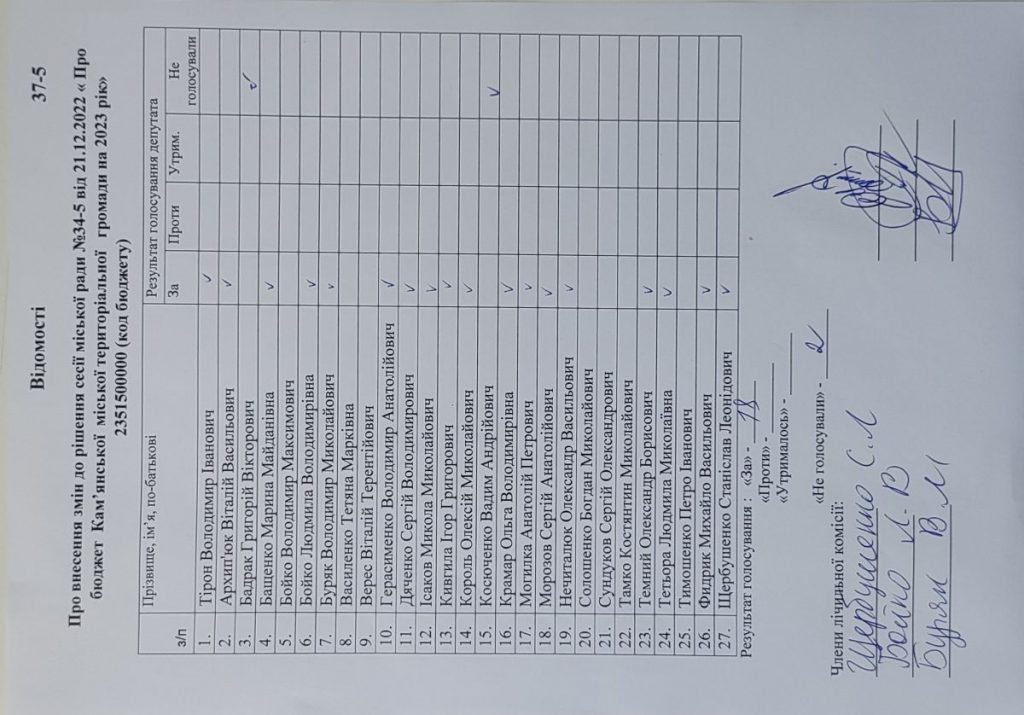 Відомості 37-5
Про внесення змін до рішення сесії міської ради №34-5 від 21.12.2022 « Про
бюджет Кам’янської міської територіальної громади на 2023 рік»
2351500000 (код бюджету)
з/п Прізвище, ім’я, по-батькові Результат голосування депутата
За Проти Утрим. Не голосували
1. Тірон Володимир Іванович ✓
2. Архип'юк Віталій Васильович ✓
3. Бадрак Григорій Вікторович ✓
4. Бащенко Марина Майданівна ✓
5. Бойко Володимир Максимович
6. Бойко Людмила Володимирівна ✓
7. Буряк Володимир Миколайович ✓
8. Василенко Тетяна Марківна
9. Верес Віталій Терентійович
10. Герасименко Володимир Анатолійович ✓
11. Дяченко Сергій Володимирович ✓
12. Ісаков Микола Миколайович ✓
13. Кивгила Ігор Григорович ✓
14. Король Олексій Миколайович ✓
15. Косюченко Вадим Андрійович ✓
16. Крамар Ольга Володимирівна ✓
17. Могилка Анатолій Петрович ✓
18. Морозов Сергій Анатолійович ✓
19. Нечиталюк Олександр Васильович ✓
20. Солошенко Богдан Миколайович
21. Сундуков Сергій Олександрович
22. Тамко Костянтин Миколайович
23. Темний Олександр Борисович ✓
24. Тетьора Людмила Миколаївна ✓
25. Тимошенко Петро Іванович
26. Фидрик Михайло Васильович ✓
27. Щербушенко Станіслав Леонідович ✓
Результат голосування : «За» - 18
«Проти» -
«Утрималось» -
«Не голосували» - 2
Члени лічильної комісії:
Щербушенко С.Л
Бойко Л.В
Буряк В.М